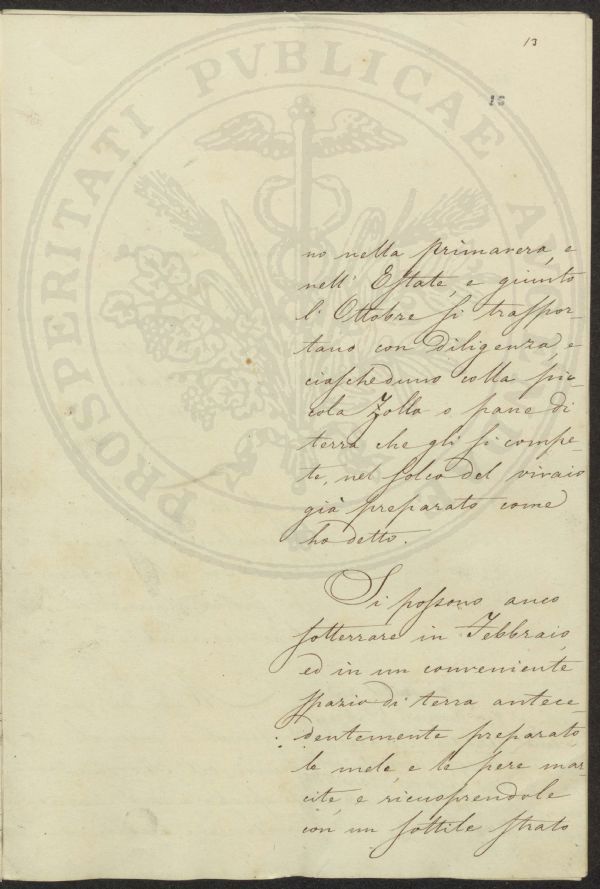 13
PROSPERITATI PVBLICAE
no nella primavera, e
nell' Estate, e giunto
l' Ottobre si traspor-
tano con diligenza, e
ciascheduno colla pic-
cola Zolla o pane di
terra che gli si compe-
te, nel solco del vivaio
già preparato come
ho detto.
Si possono anco
sotterrare in Febbraio,
ed in un conveniente
spazio di terra antece-
dentemente preparato
le mele, e le pere mar-
cite, e ricuoprendole
con un sottile strato